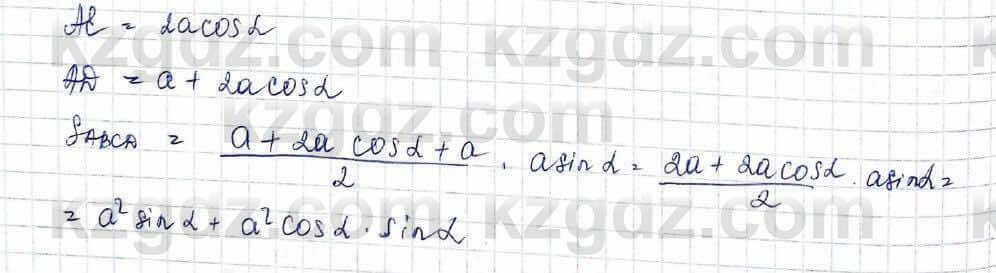 AE = 2a cos α
AD = a + 2a cos α
S ABCD = (a + 2a cos α + a)/2 · a sin α = (2a + 2a cos α)/2 · a sin α =
= a² sin α + a² cos α · sin α
kzgdz.com kzgdz.com
kzgdz.com
kzgdz.com kzgdz.com